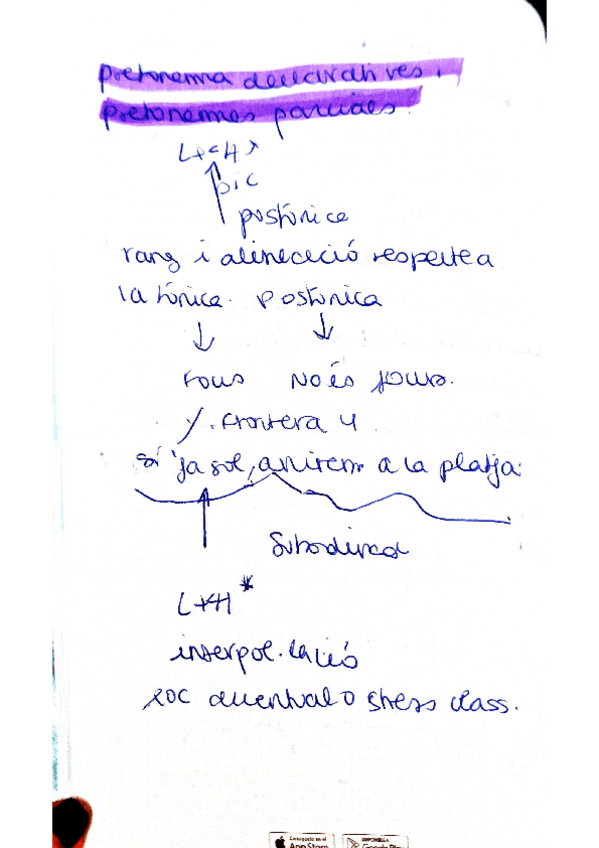 pretonema declaratives i
pretonemes parciales.
L+<H*
pic
postònica
rang i alineació respecte a
la tònica. postònica
↓ ↓
focus No és focus.
/. Frontera 4
si fa sol, anirem a la platja.
Subordinada
L+H*
interpol.lació
xoc accentual o stress clash.
Consíguelo en el
App Store
DISPONIBLE EN
Google Play